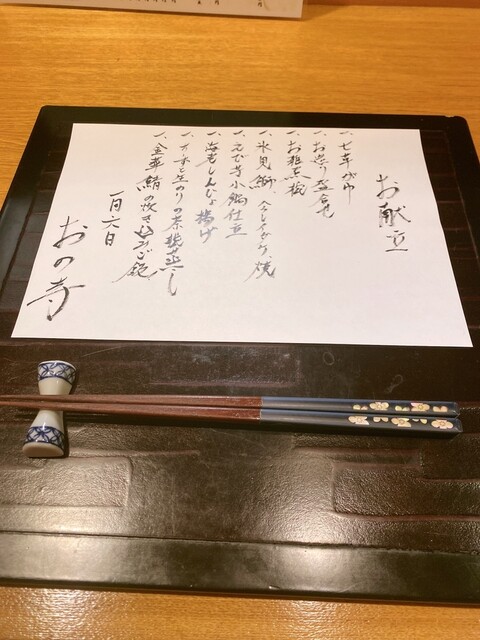 お献立
一、七草
一、お造り盛合せ
一、お雑煮椀
一、氷見鰤 へしイガケ焼
一、えび芋小鍋仕立
一、海老しんじょ揚げ
一、生のりの茶碗蒸し
一、金華鯖の炊き込みご飯
一月六日
おの寺